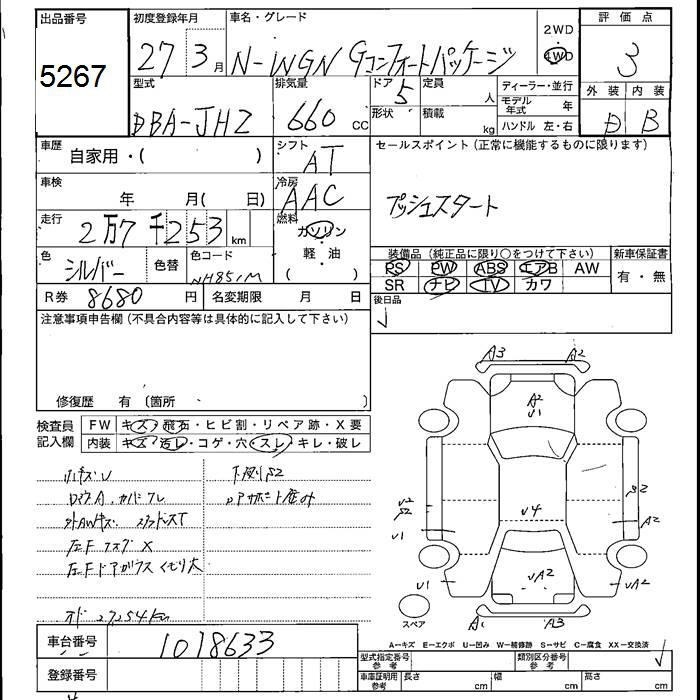 出品番号
5267
初度登録年月
27 3月
車名・グレード
N-WGN Gコンフォートパッケージ
2WD
4WD
評価点
3
外装 内装
D B
型式
DBA-JH2
排気量
660 cc
ドア 5
形状
定員 人
積載 kg
ディーラー・並行
モデル年式 年
ハンドル 左・右
車歴
自家用・( )
シフト
AT
セールスポイント(正常に機能するものに限ります)
プッシュスタート
車検
年 月( 日)
冷房
AAC
走行
2万7千253 km
燃料
ガソリン
・
軽・油
( )
色
シルバー
色替
色コード
NH851M
装備品(純正品に限り○をつけて下さい)
PS PW ABS エアB AW
SR ナビ TV カワ
新車保証書
有・無
R券 8680 円
名変期限 月 日
後日品
注意事項申告欄(不具合内容等は具体的に記入して下さい)
修復歴 有〔箇所 〕
検査員記入欄
FW キズ・飛石・ヒビ割・リペア跡・X要
内装 キズ・汚レ・コゲ・穴・スレ・キレ・破レ
左Fドアガラスくもり大
オド 27254km
A3 A2
A2
U1
U2
A2
U1
U4
U1
UA2
UA2
A1 A3
スペア
A-キズ E-エクボ U-凹み W-補修跡 S-サビ C-腐食 XX-交換済
車台番号
1018633
登録番号
型式指定番号 参考
類別区分番号 参考
車庫証明用 参考
長さ cm
幅 cm
高さ cm